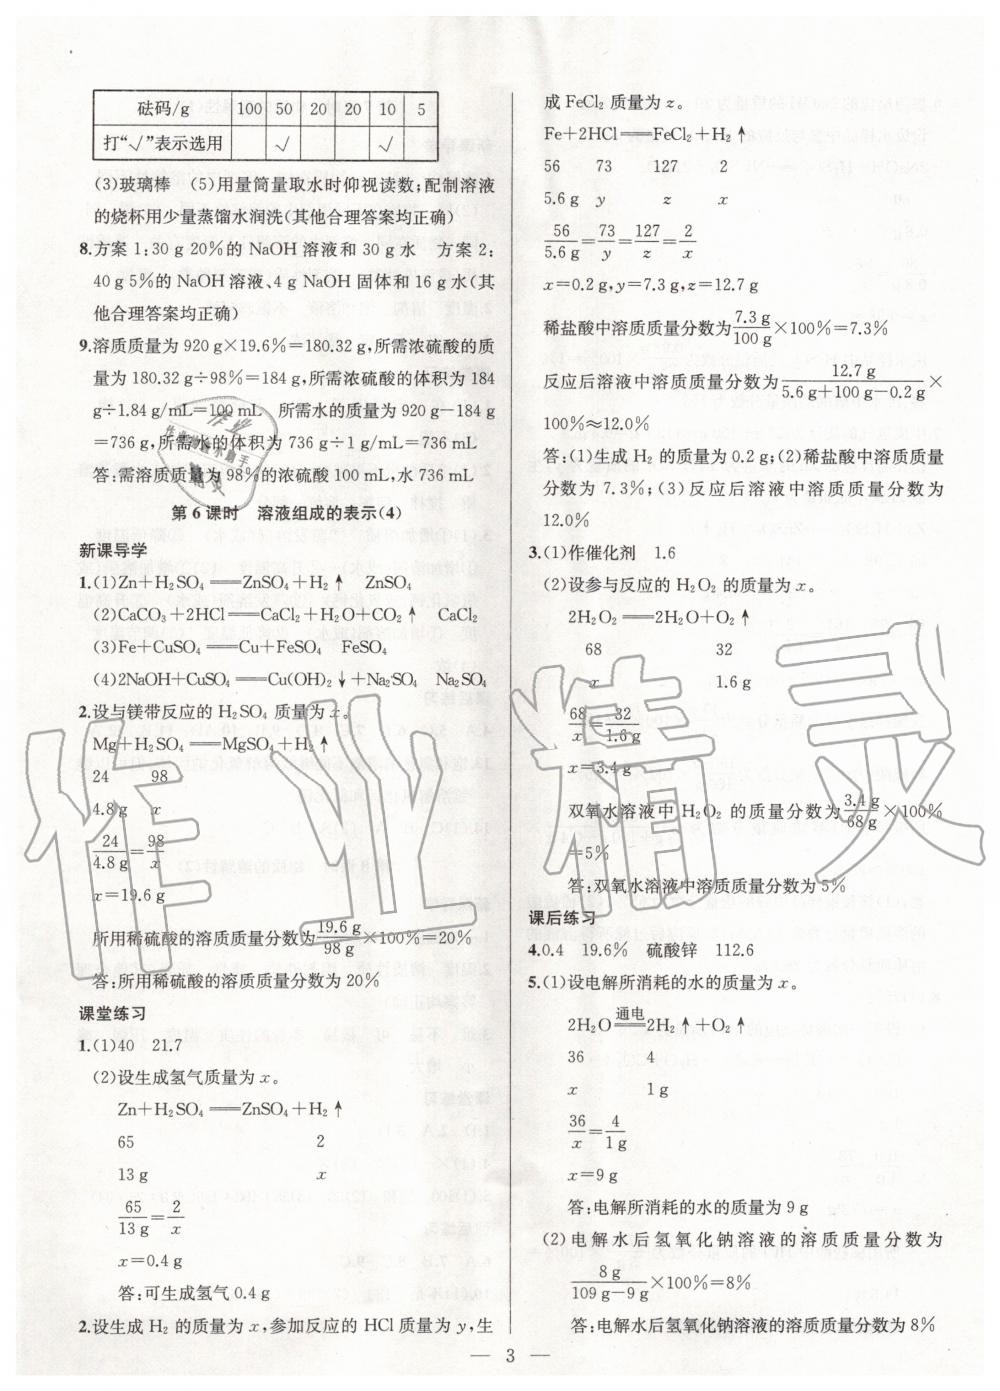 砝码/g 100 50 20 20 10 5
打“√”表示选用 √ √
(3)玻璃棒 (5)用量筒量取水时仰视读数;配制溶液
的烧杯用少量蒸馏水润洗(其他合理答案均正确)
8.方案1:30 g 20%的 NaOH 溶液和 30 g 水 方案2:
40 g 5%的 NaOH 溶液、4 g NaOH 固体和 16 g 水(其
他合理答案均正确)
9.溶质质量为 920 g×19.6%=180.32 g,所需浓硫酸的质
量为 180.32 g÷98%=184 g,所需浓硫酸的体积为 184
g÷1.84 g/mL=100 mL 所需水的质量为 920 g−184 g
=736 g,所需水的体积为 736 g÷1 g/mL=736 mL
答:需溶质质量为98%的浓硫酸 100 mL,水 736 mL
第6课时 溶液组成的表示(4)
新课导学
1.(1)Zn+H₂SO₄══ZnSO₄+H₂↑ ZnSO₄
(2)CaCO₃+2HCl══CaCl₂+H₂O+CO₂↑ CaCl₂
(3)Fe+CuSO₄══Cu+FeSO₄ FeSO₄
(4)2NaOH+CuSO₄══Cu(OH)₂↓+Na₂SO₄ Na₂SO₄
2.设与镁带反应的 H₂SO₄ 质量为x。
Mg+H₂SO₄══MgSO₄+H₂↑
24 98
4.8 g x
24/4.8 g=98/x
x=19.6 g
所用稀硫酸的溶质质量分数为19.6 g/98 g×100%=20%
答:所用稀硫酸的溶质质量分数为20%
课堂练习
1.(1)40 21.7
(2)设生成氢气质量为x。
Zn+H₂SO₄══ZnSO₄+H₂↑
65 2
13 g x
65/13 g=2/x
x=0.4 g
答:可生成氢气0.4 g
2.设生成 H₂ 的质量为x,参加反应的 HCl 质量为y,生
成 FeCl₂ 质量为z。
Fe+2HCl══FeCl₂+H₂↑
56 73 127 2
5.6 g y z x
56/5.6 g=73/y=127/z=2/x
x=0.2 g,y=7.3 g,z=12.7 g
稀盐酸中溶质质量分数为7.3 g/100 g×100%=7.3%
反应后溶液中溶质质量分数为12.7 g/5.6 g+100 g−0.2 g×
100%≈12.0%
答:(1)生成 H₂ 的质量为0.2 g;(2)稀盐酸中溶质质量
分数为 7.3%;(3)反应后溶液中溶质质量分数为
12.0%
3.(1)作催化剂 1.6
(2)设参与反应的 H₂O₂ 的质量为x。
2H₂O₂══2H₂O+O₂↑
68 32
x 1.6 g
68/x=32/1.6 g
x=3.4 g
双氧水溶液中 H₂O₂ 的质量分数为3.4 g/68 g×100%
=5%
答:双氧水溶液中溶质质量分数为5%
课后练习
4.0.4 19.6% 硫酸锌 112.6
5.(1)设电解所消耗的水的质量为x。
2H₂O═通电═2H₂↑+O₂↑
36 4
x 1 g
36/x=4/1 g
x=9 g
答:电解所消耗的水的质量为9 g
(2)电解水后氢氧化钠溶液的溶质质量分数为
8 g/109 g−9 g×100%=8%
答:电解水后氢氧化钠溶液的溶质质量分数为8%
— 3 —
作业精灵